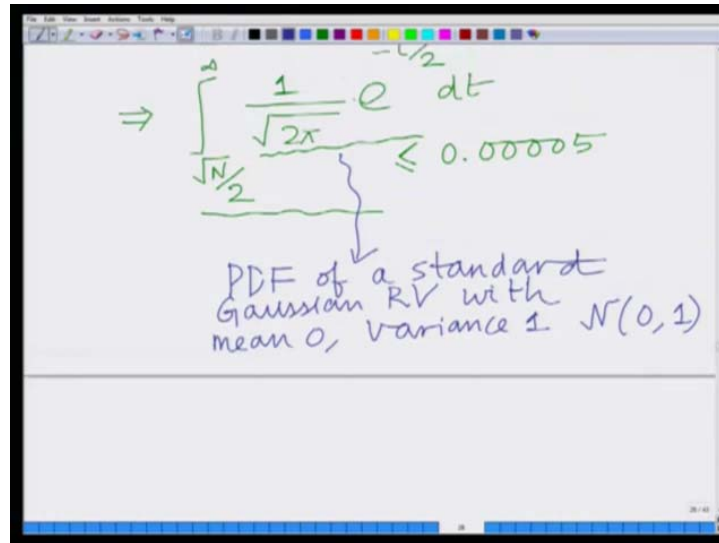 File Edit View Insert Actions Tools Help
⇒ ∫_{√N/2}^{∞} 1/√2π e^{-t/2} dt
≤ 0.00005
PDF of a standard
Gaussian RV with
mean 0, variance 1 N(0,1)